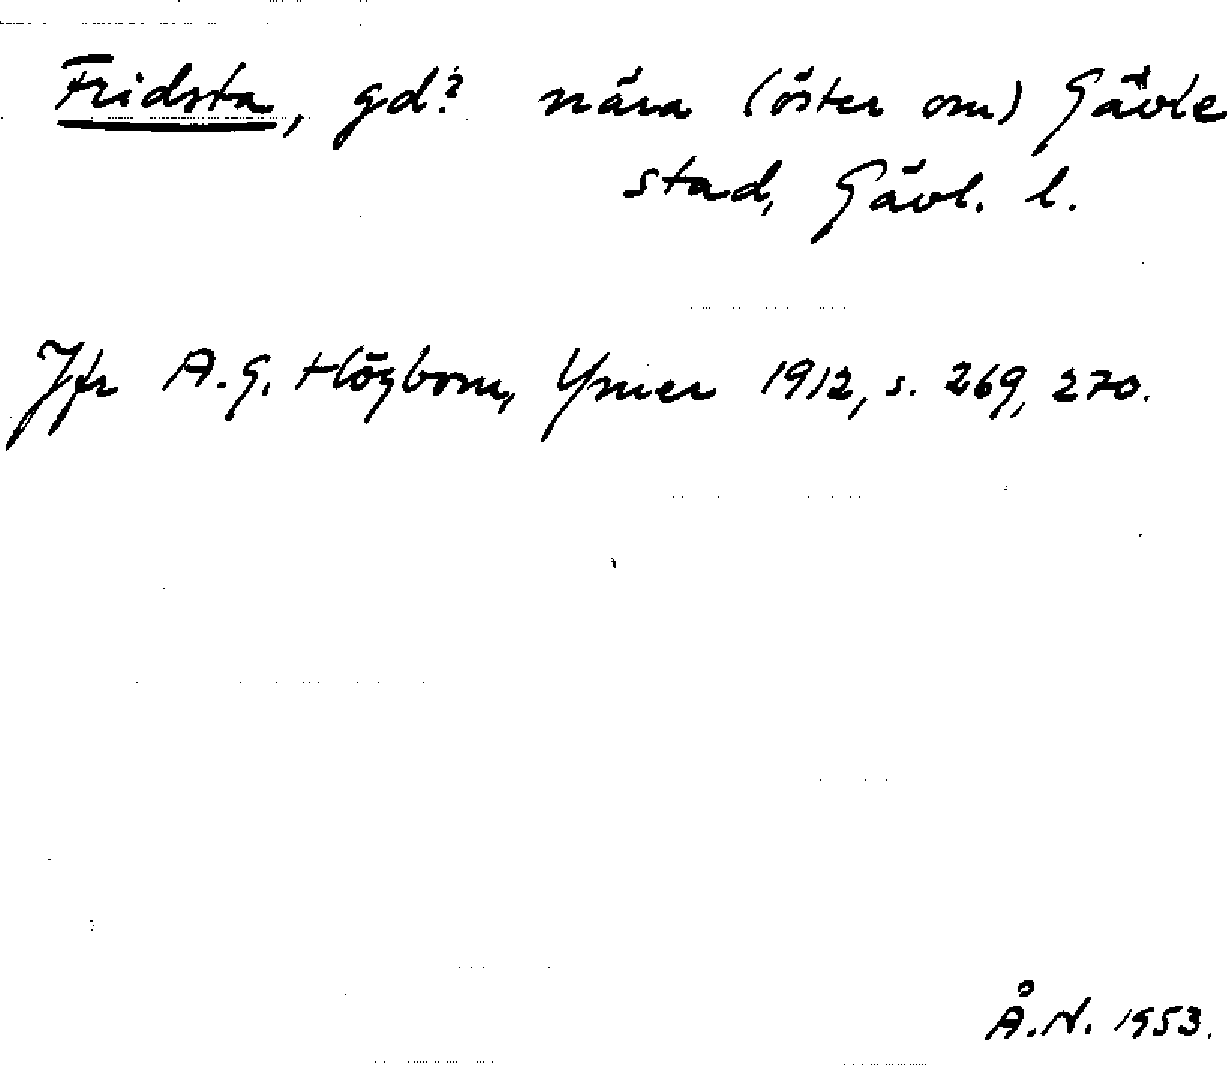 Fridsta, gd? nära (öster om) Gävle
stad, Gävl. l.
Jfr A. G. Högbom, Ymer 1912, s. 269, 270.
Å. N. 1953.